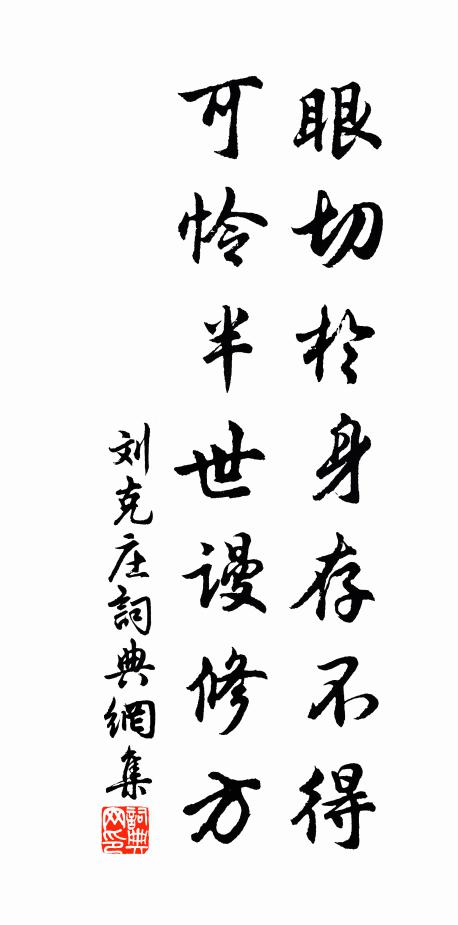 眼切於身存不得
可怜半世謾修方
刘克庄詞典網集
詞典網印